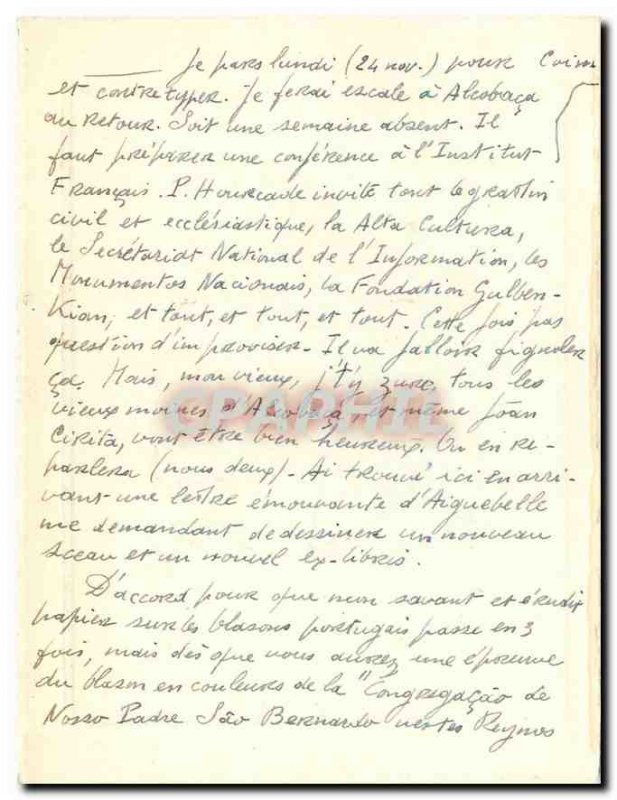 Je pars lundi (24 nov.) pour Coim
et contretyper. Je ferai escale à Alcobaça
au retour. Soit une semaine absent. Il
faut préparer une conférence à l'Institut
Français. P. Hourcade invite tout le gratin
civil et ecclésiastique, la Alta Cultura,
le Secrétariat National de l'Information, les
Monumentos Nacionais, la Fondation Gulben-
kian, et tout, et tout, et tout. Cette fois pas
question d'improviser. Il va falloir fignoler
ça. Mais, mon vieux, j't'y jure, tous les
vieux moines d'Alcobaça, et même João
Cirita, vont être bien heureux. On en re-
parlera (nous deux). Ai trouvé ici en arri-
vant une lettre émouvante d'Aiguebelle
me demandant de dessiner un nouveau
sceau et un nouvel ex-libris.
D'accord pour que mon savant et érudit
papier sur les blasons portugais passe en 3
fois, mais dès que vous aurez une épreuve
du blason en couleurs de la "Congregação de
Nosso Padre São Bernardo nestes Reynos
CPAPHIL